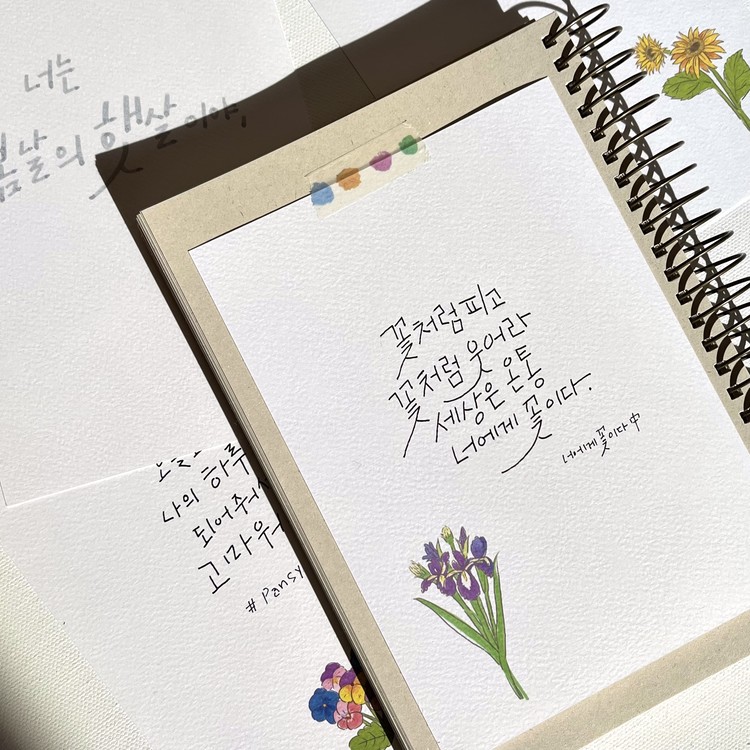 너는
봄날의 햇살이야,
꽃처럼 피고
꽃처럼 웃어라
세상은 온통
너에게 꽃이다.
너에게 꽃이다 中
나의 하루
되어줘서
고마워
# Pansy